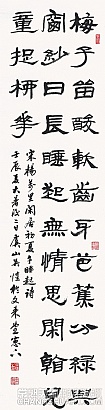 梅子留酸軟齒牙芭蕉分綠與
窗紗日長睡起無情思閑看兒
童捉柳華
宋楊萬里閑居初夏午睡起詩
壬辰大暑後二日虞山